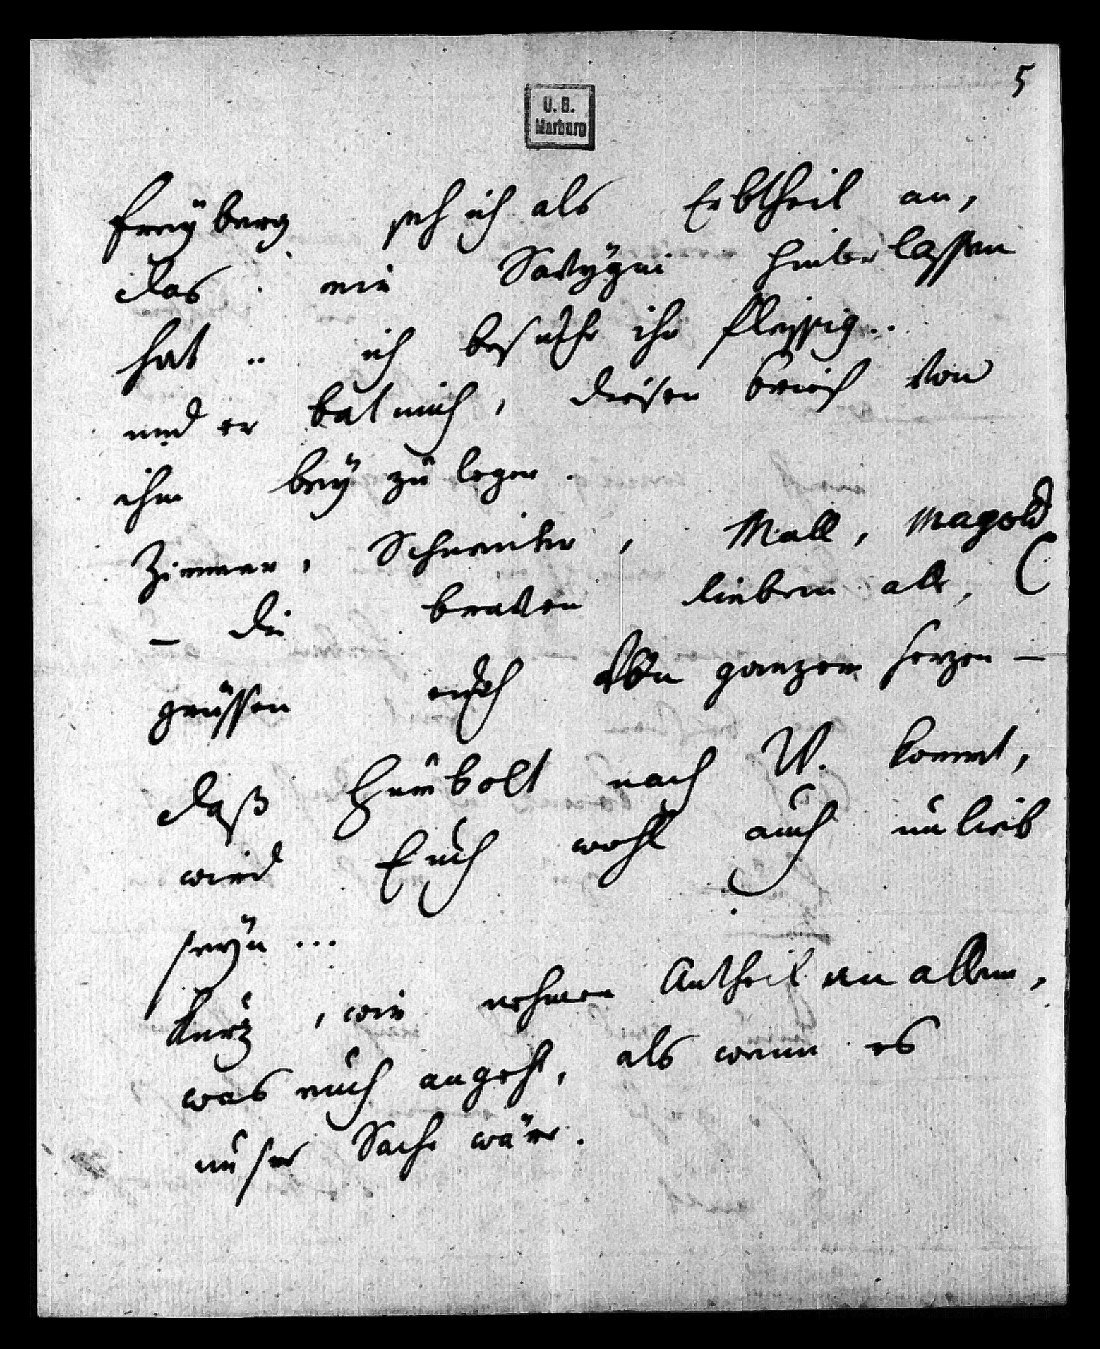 5
U. B.
Marburg
Freyberg seh ich als Erbtheil an,
das mir Savygni hinterlassen
hat .. ich besuche ihn fleissig..
und er bat mich, diesen Brief von
ihm bey zu legen.
Zimmer, Schneider, Mall, Magold
– die braven lieben alle,
grüssen euch von ganzem Herzen –
daß Humbolt nach W. kommt,
wird Euch wohl auch unlieb
seyn ...
Kurz, wir nehmen Antheil an allem,
was euch angeht, als wenn es
unser Sache wäre.